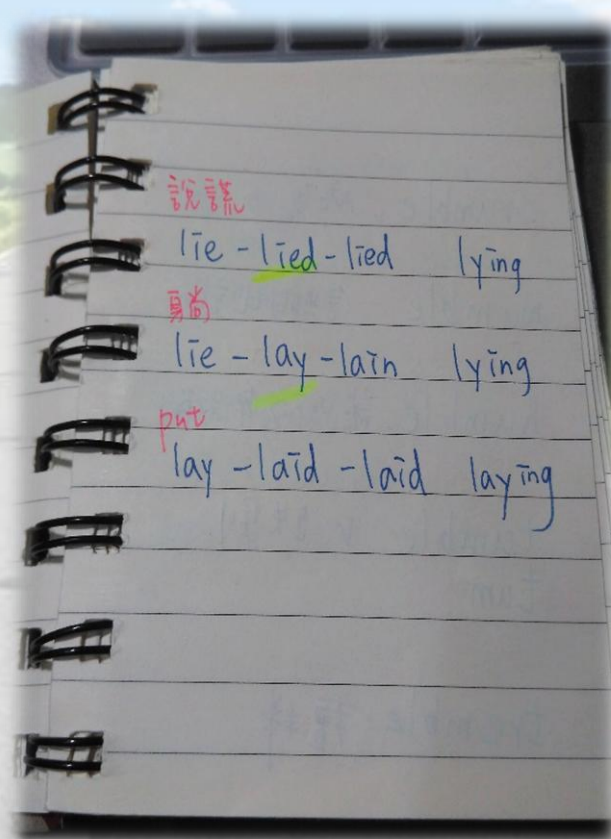 說謊
lie - lied - lied lying
躺
lie - lay - lain lying
put
lay - laid - laid laying